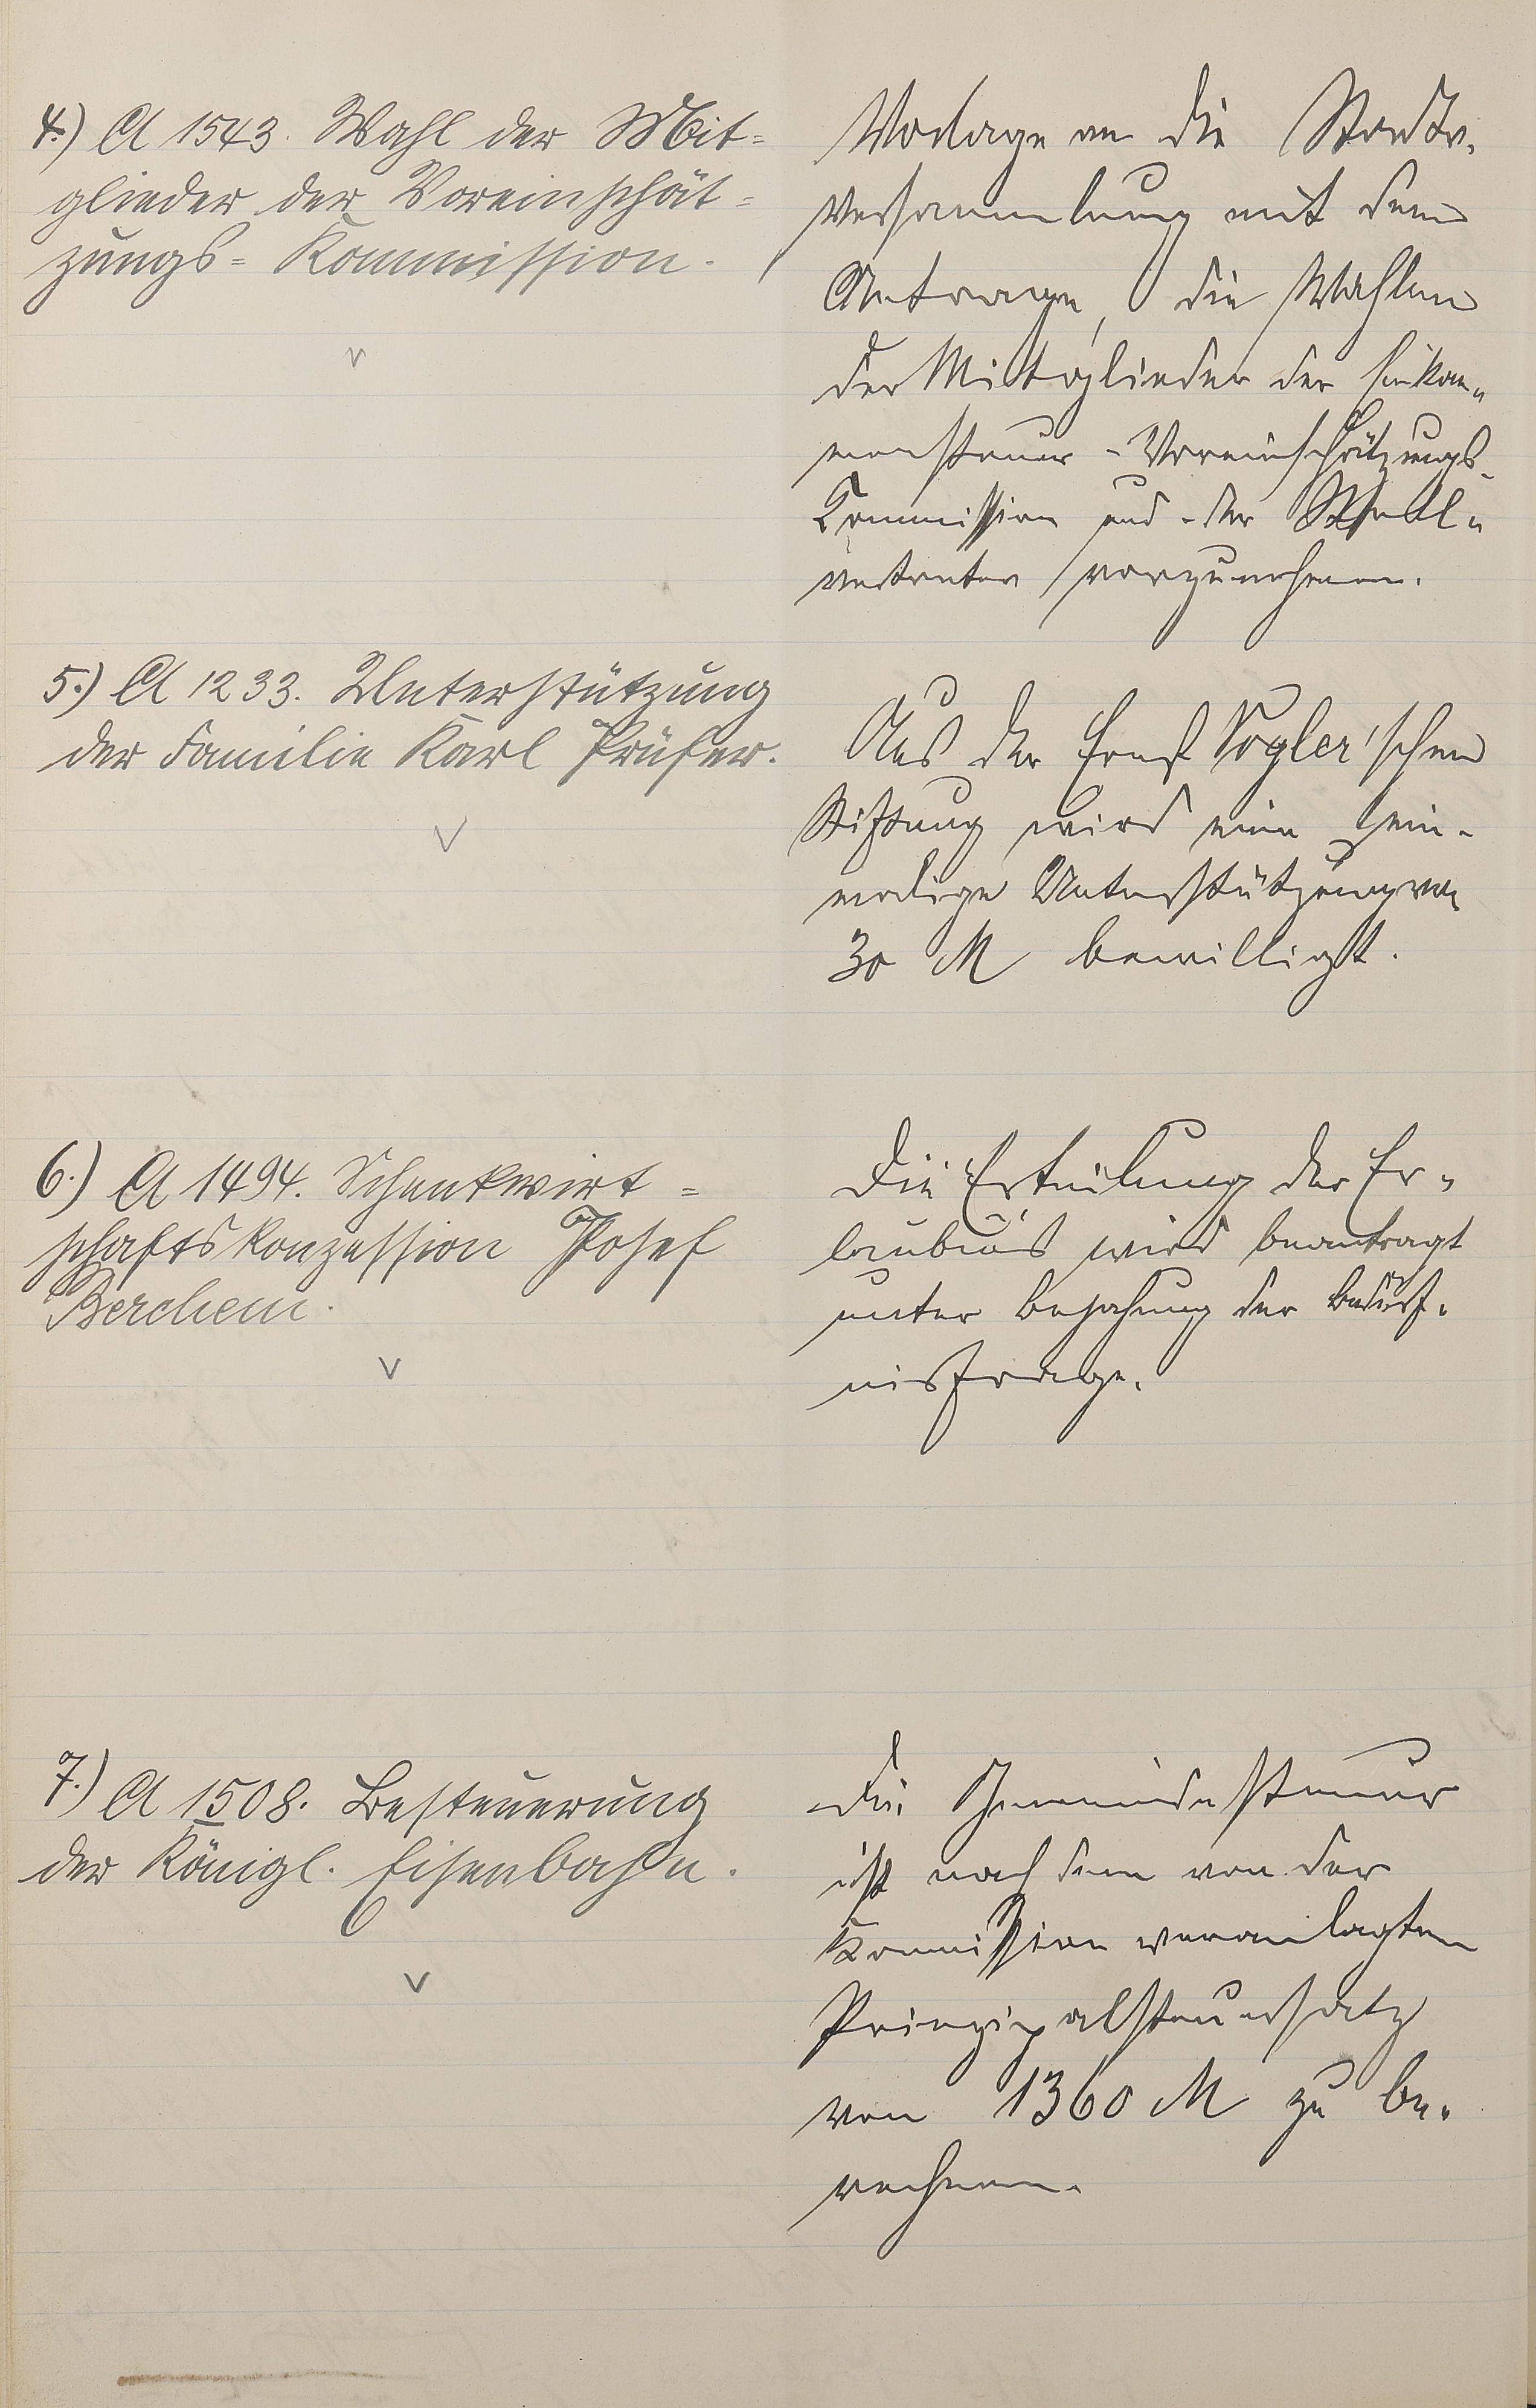 4.) A 1543. Wahl der Mit=
glieder der Voreinschät=
zungs= Kommission.
Vorlage an die Stadtv.
Versammlung mit dem
Antrage, die Wahlen
der Mitglieder der Einkom-
mensteuer-Voreinschätzungs-
Commission und der Stell-
vertreter vorzunehmen.
5.) A 1233. Unterstützung
der Familie Karl Prüfer.
Aus der Ernst Vogler'schen
Stiftung wird eine ein-
malige Unterstützung von
30 M bewilligt.
6.) A 1494. Schankwirt=
schaftskonzession Josef
Berchem.
Die Erteilung der Er-
laubnis wird beantragt
unter Bejahung der Bedürf-
nisfrage.
7.) A 1508. Besteuerung
der Königl. Eisenbahn.
Die Gemeindesteuer
ist nach dem von der
Kommission veranlagten
Prinzipalsteuersatz
von 1360 M zu be-
rechnen.